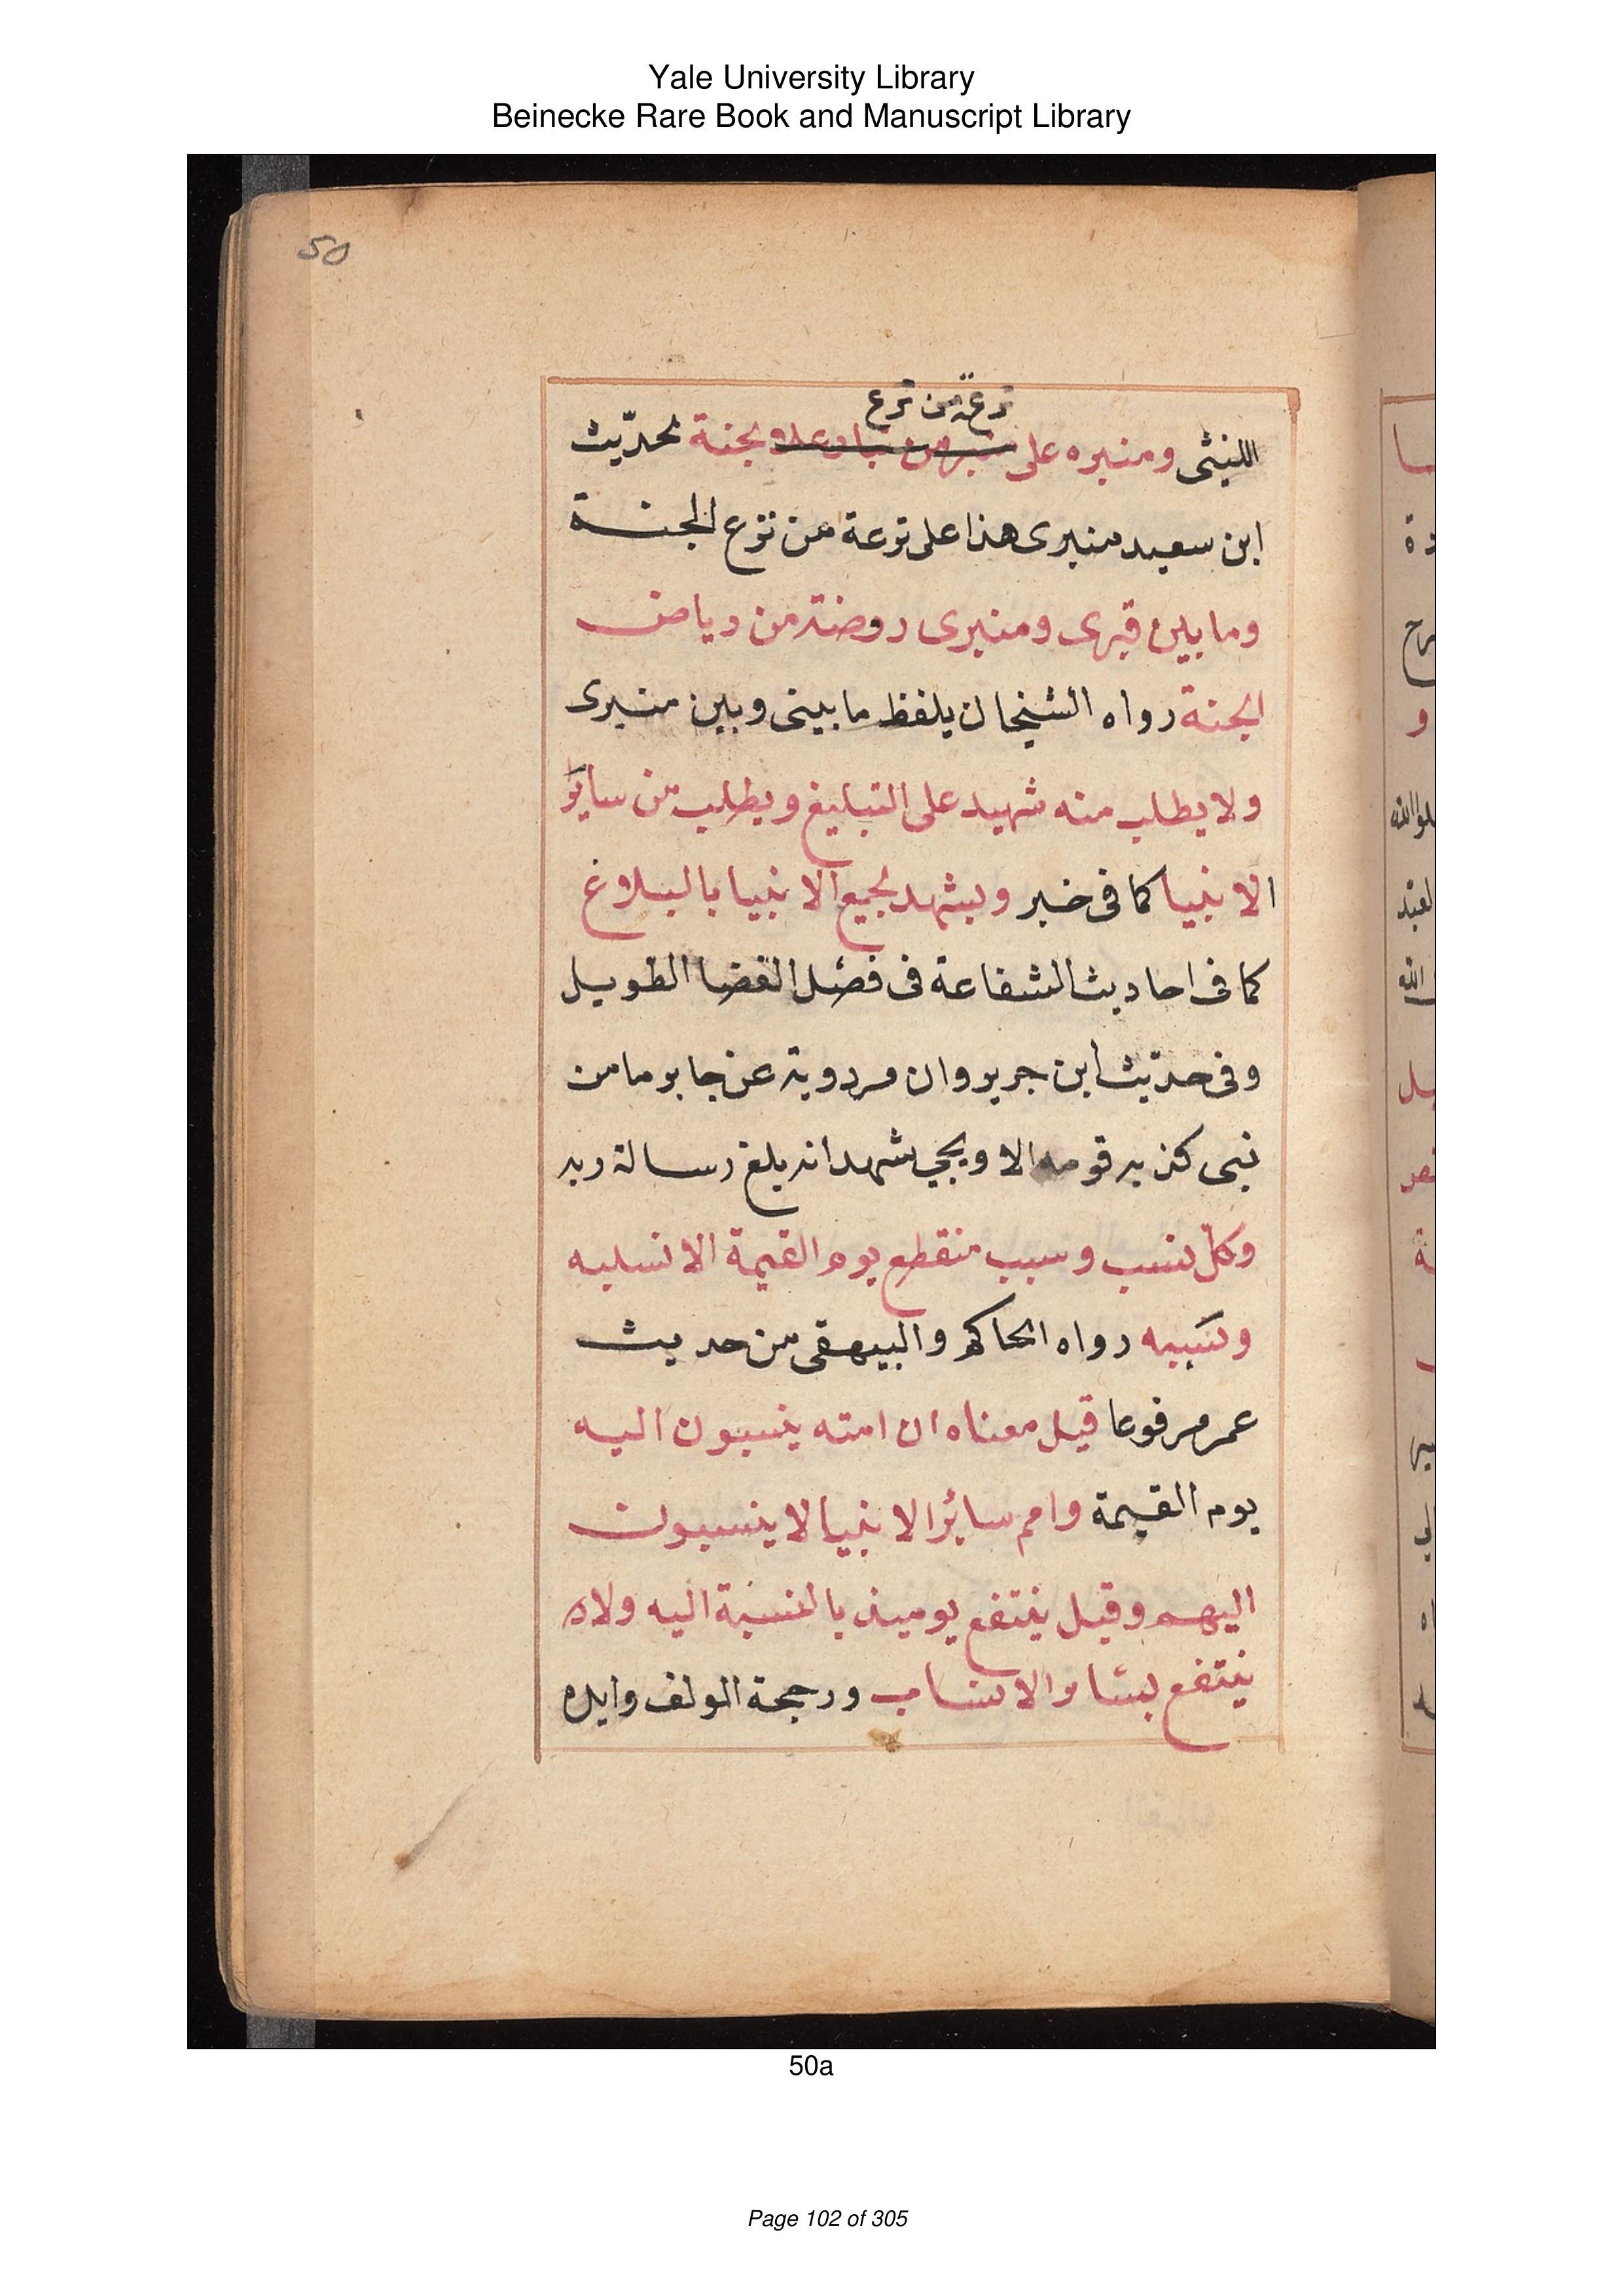 Yale University Library
Beinecke Rare Book and Manuscript Library
50
ترعة من ترع
الليثى ومنبره على منبر من الجنة لحديث
ابن سعيد منبرى هذا على ترعة من ترع الجنة
وما بين قبرى ومنبرى روضة من رياض
الجنة رواه الشيخان بلفظ ما بينى وبين منبرى
ولا يطلب منه شهيد على التبليغ ويطلب من سائر
الانبيا كما فى خبر ويشهد لجميع الانبيا بالبلاغ
كما فى احاديث الشفاعة فى فصل القضا الطويل
وفى حديث ابن جرير وان مردوية عن جابر ما من
نبى كذبه قومه الا ويجي شهد انه بلغ رسالة ربه
وكل نسب وسبب منقطع يوم القيمة الا نسبه
وسببه رواه الحاكم والبيهقى من حديث
عمر مرفوعا قيل معناه ان امته ينسبون اليه
يوم القيمة وامم سائر الانبيا لا ينسبون
اليهم وقيل ينتفع يوميذ بالنسبة اليه ولا
ينتفع بسائر الانساب ورجحة المولف وايده
50a
Page 102 of 305